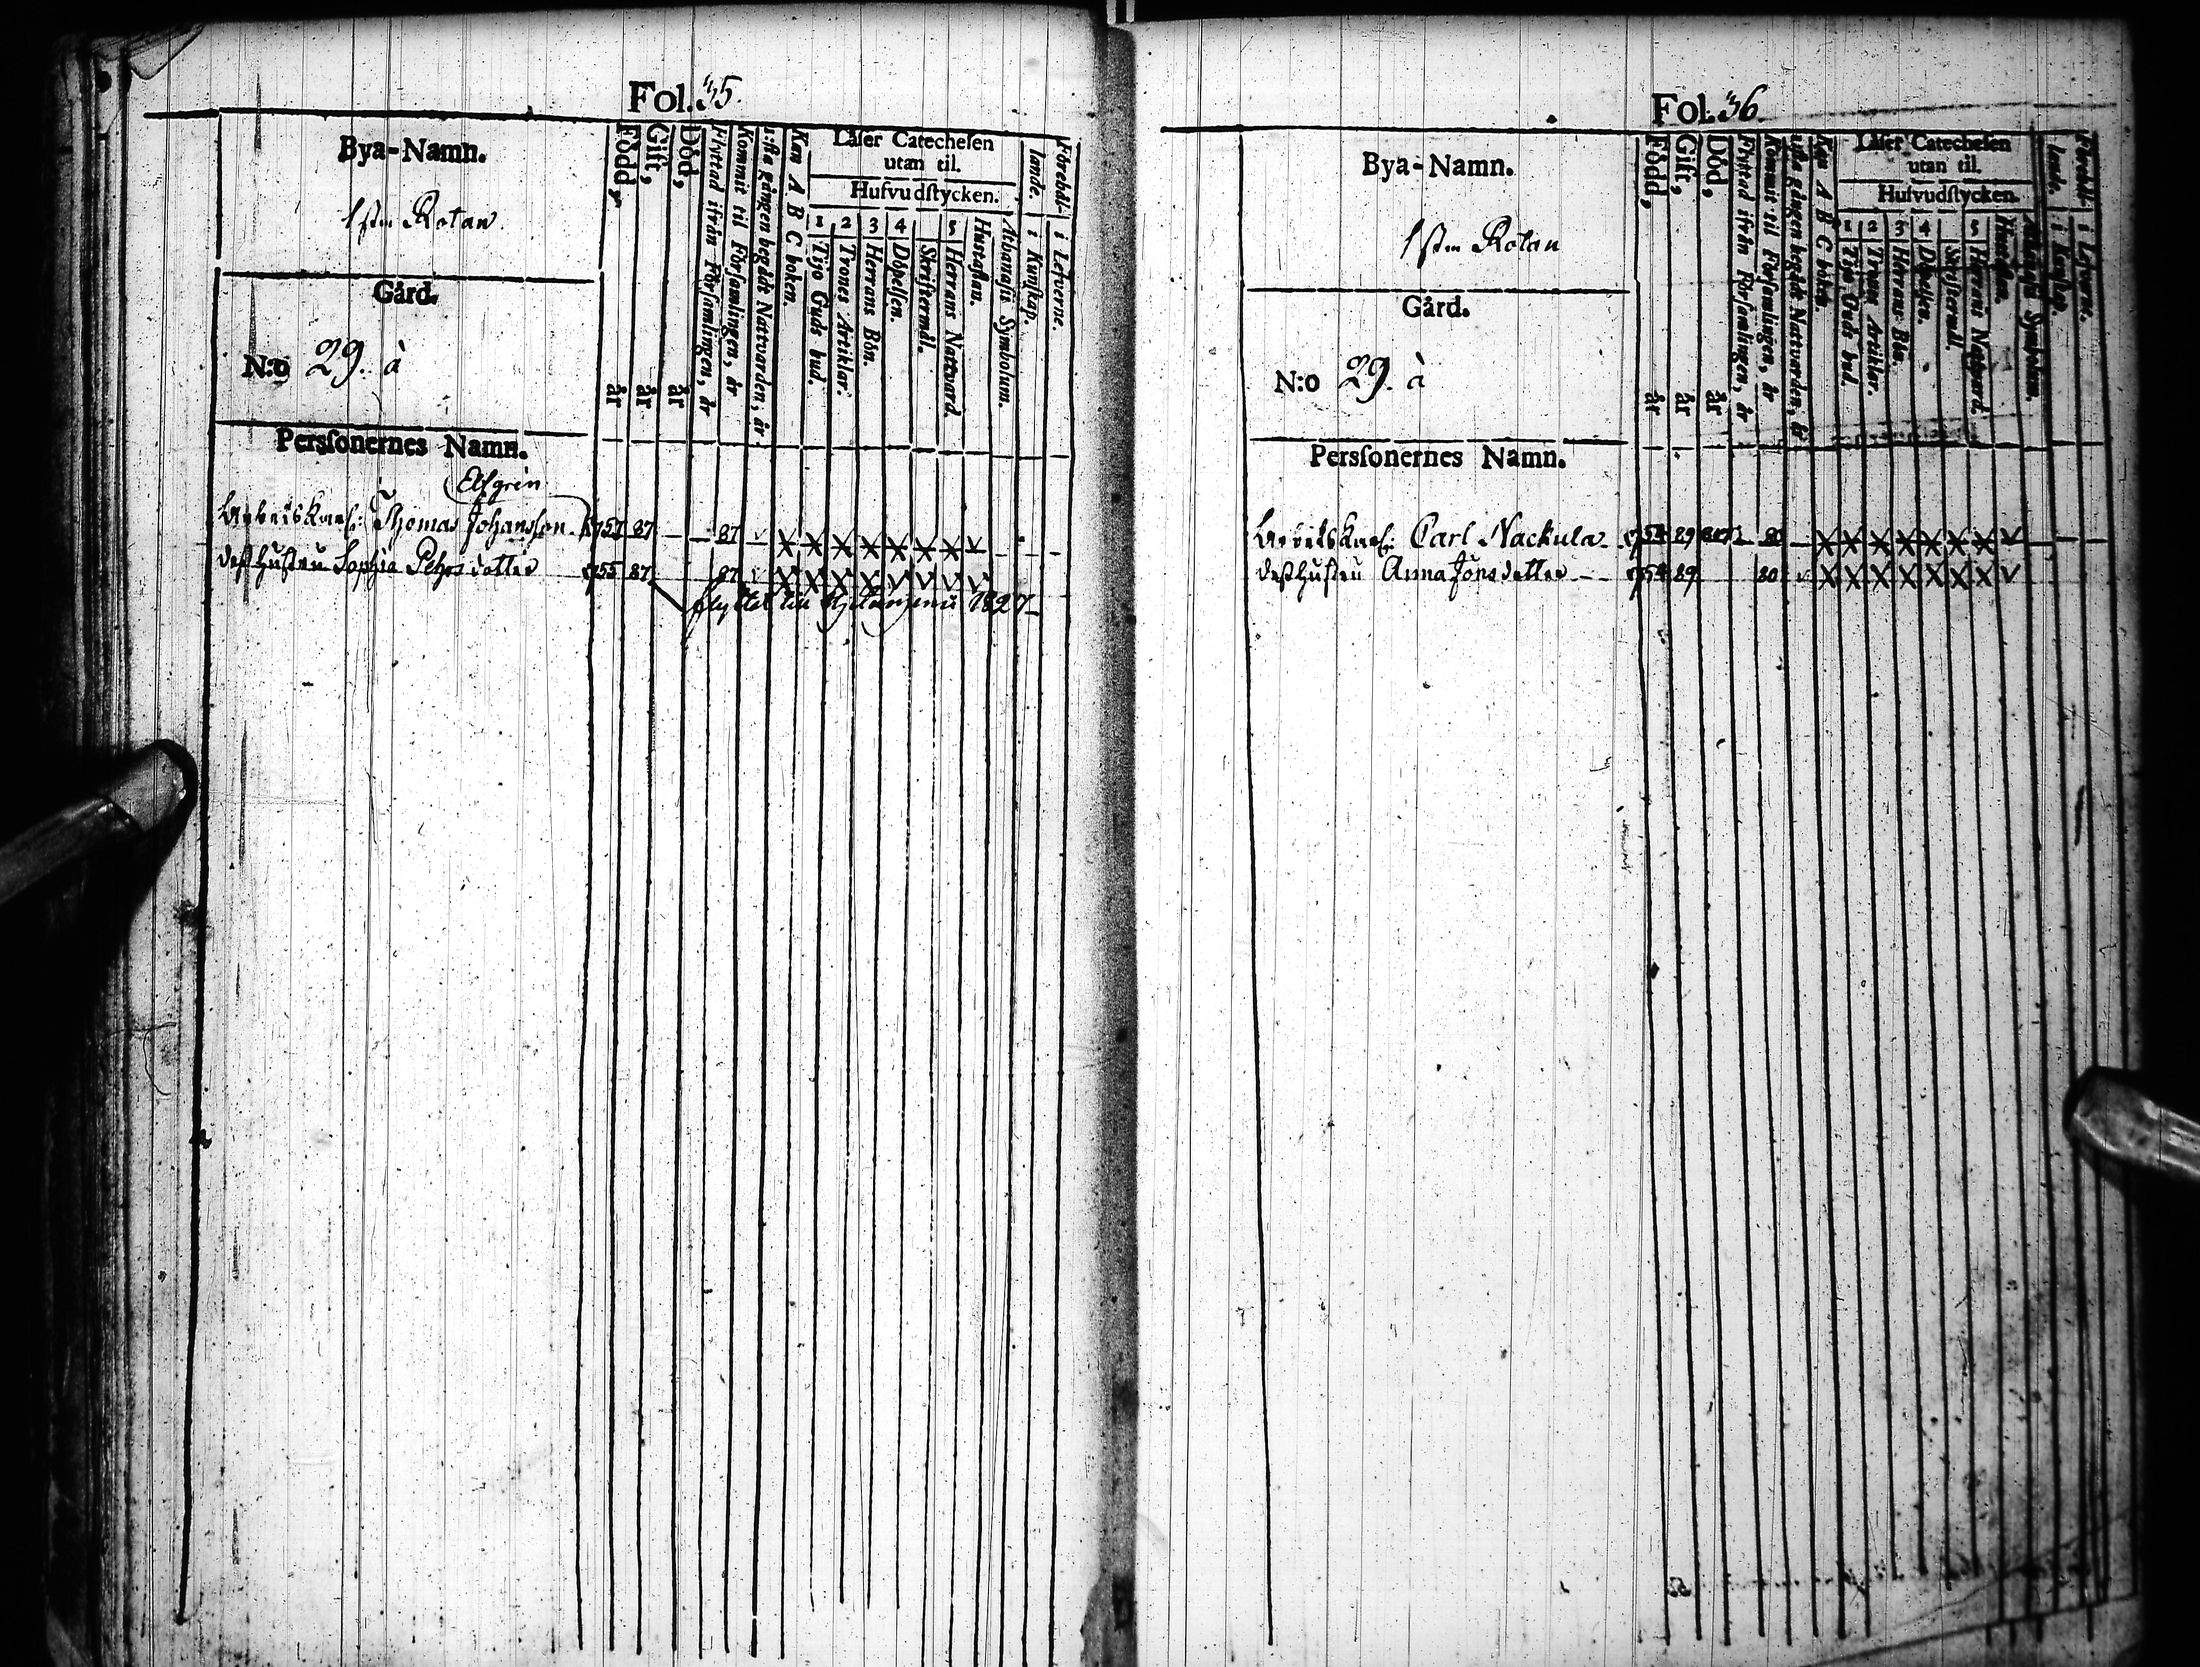 Fol. 35.
Bya-Namn.
1sta Rotan
Gård.
N:o 29. à
Född, år
Gift, år
Död, år
Flyttad ifrån Församlingen, år
Kommit til Församlingen, år
sista gången begådt Nattvarden, år
Kan A B C boken.
Läser Catechesen utan til.
Hufvudstycken.
1 Tijo Guds bud.
2 Trones Artiklar.
3 Herrans Bön.
4 Döpelsen.
Skriftermål.
5 Herrans Nattvard.
Hustaflan.
Athanasii Symbolum.
Förehållande.
i Kunskap.
i Lefverne.
Personernes Namn.
Elfgrén
Arbetskarl: Thomas Johansson 1757 87 87
dess hustru Sophia Pehrsdotter 1755 87 87
flyttat till 1827
Fol. 36.
Bya-Namn.
1sta Rotan
Gård.
N:o 29. à
Född, år
Gift, år
Död, år
Flyttad ifrån Församlingen, år
Kommit til Församlingen, år
sista gången begådt Nattvarden, år
Kan A B C boken.
Läser Catechesen utan til.
Hufvudstycken.
1 Tijo Guds bud.
2 Trones Artiklar.
3 Herrans Bön.
4 Döpelsen.
Skriftermål.
5 Herrans Nattvard.
Hustaflan.
Athanasii Symbolum.
Förehållande.
i Kunskap.
i Lefverne.
Personernes Namn.
Arbetskarl: Carl Nackula 1754 89 80
dess hustru Anna Jönsdotter 1754 89 80